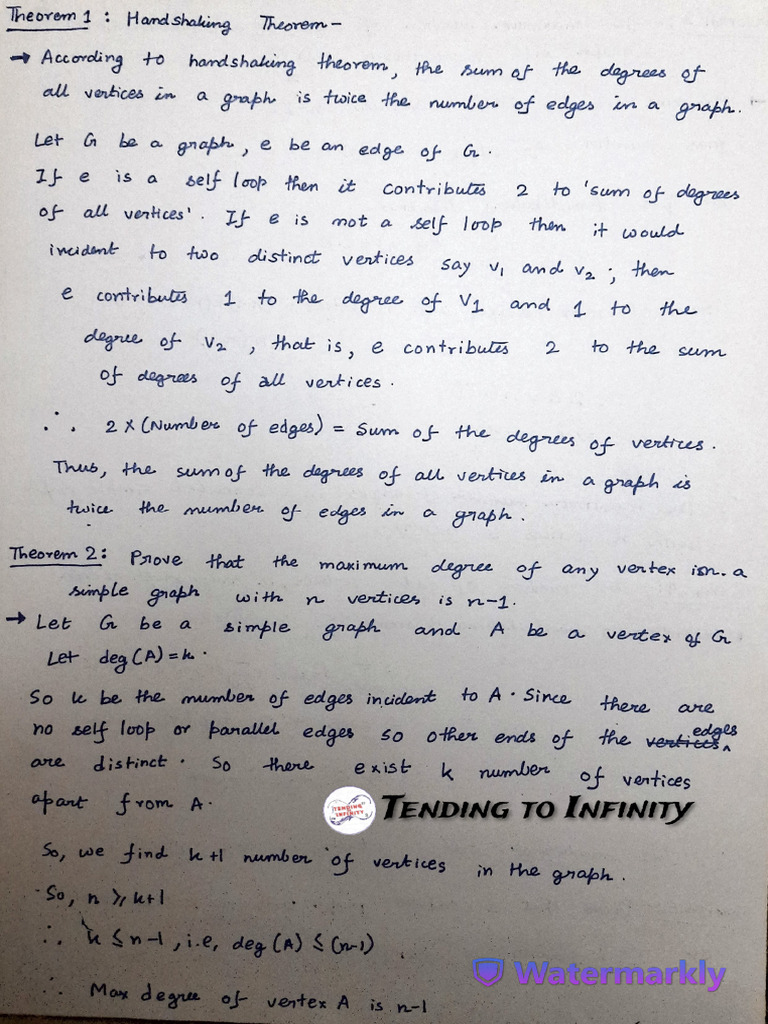 Theorem 1 : Handshaking Theorem -
→ According to handshaking theorem, the sum of the degrees of
all vertices in a graph is twice the number of edges in a graph.
Let G be a graph, e be an edge of G.
If e is a self loop then it contributes 2 to 'sum of degrees
of all vertices'. If e is not a self loop then it would
incident to two distinct vertices say v₁ and v₂ ; then
e contributes 1 to the degree of V₁ and 1 to the
degree of V₂ , that is, e contributes 2 to the sum
of degrees of all vertices.
∴ 2 X (Number of edges) = Sum of the degrees of vertices.
Thus, the sum of the degrees of all vertices in a graph is
twice the number of edges in a graph.
Theorem 2: Prove that the maximum degree of any vertex in a
simple graph with n vertices is n-1.
→ Let G be a simple graph and A be a vertex of G
Let deg(A) = k.
So k be the number of edges incident to A. Since there are
no self loop or parallel edges so other ends of the vertices edges
are distinct. So there exist k number of vertices
apart from A.
TENDING TO INFINITY
TENDING TO INFINITY
So, we find k+1 number of vertices in the graph.
So, n ≥ k+1
∴ k ≤ n-1 , i.e, deg (A) ≤ (n-1)
Watermarkly
∴ Max degree of vertex A is n-1